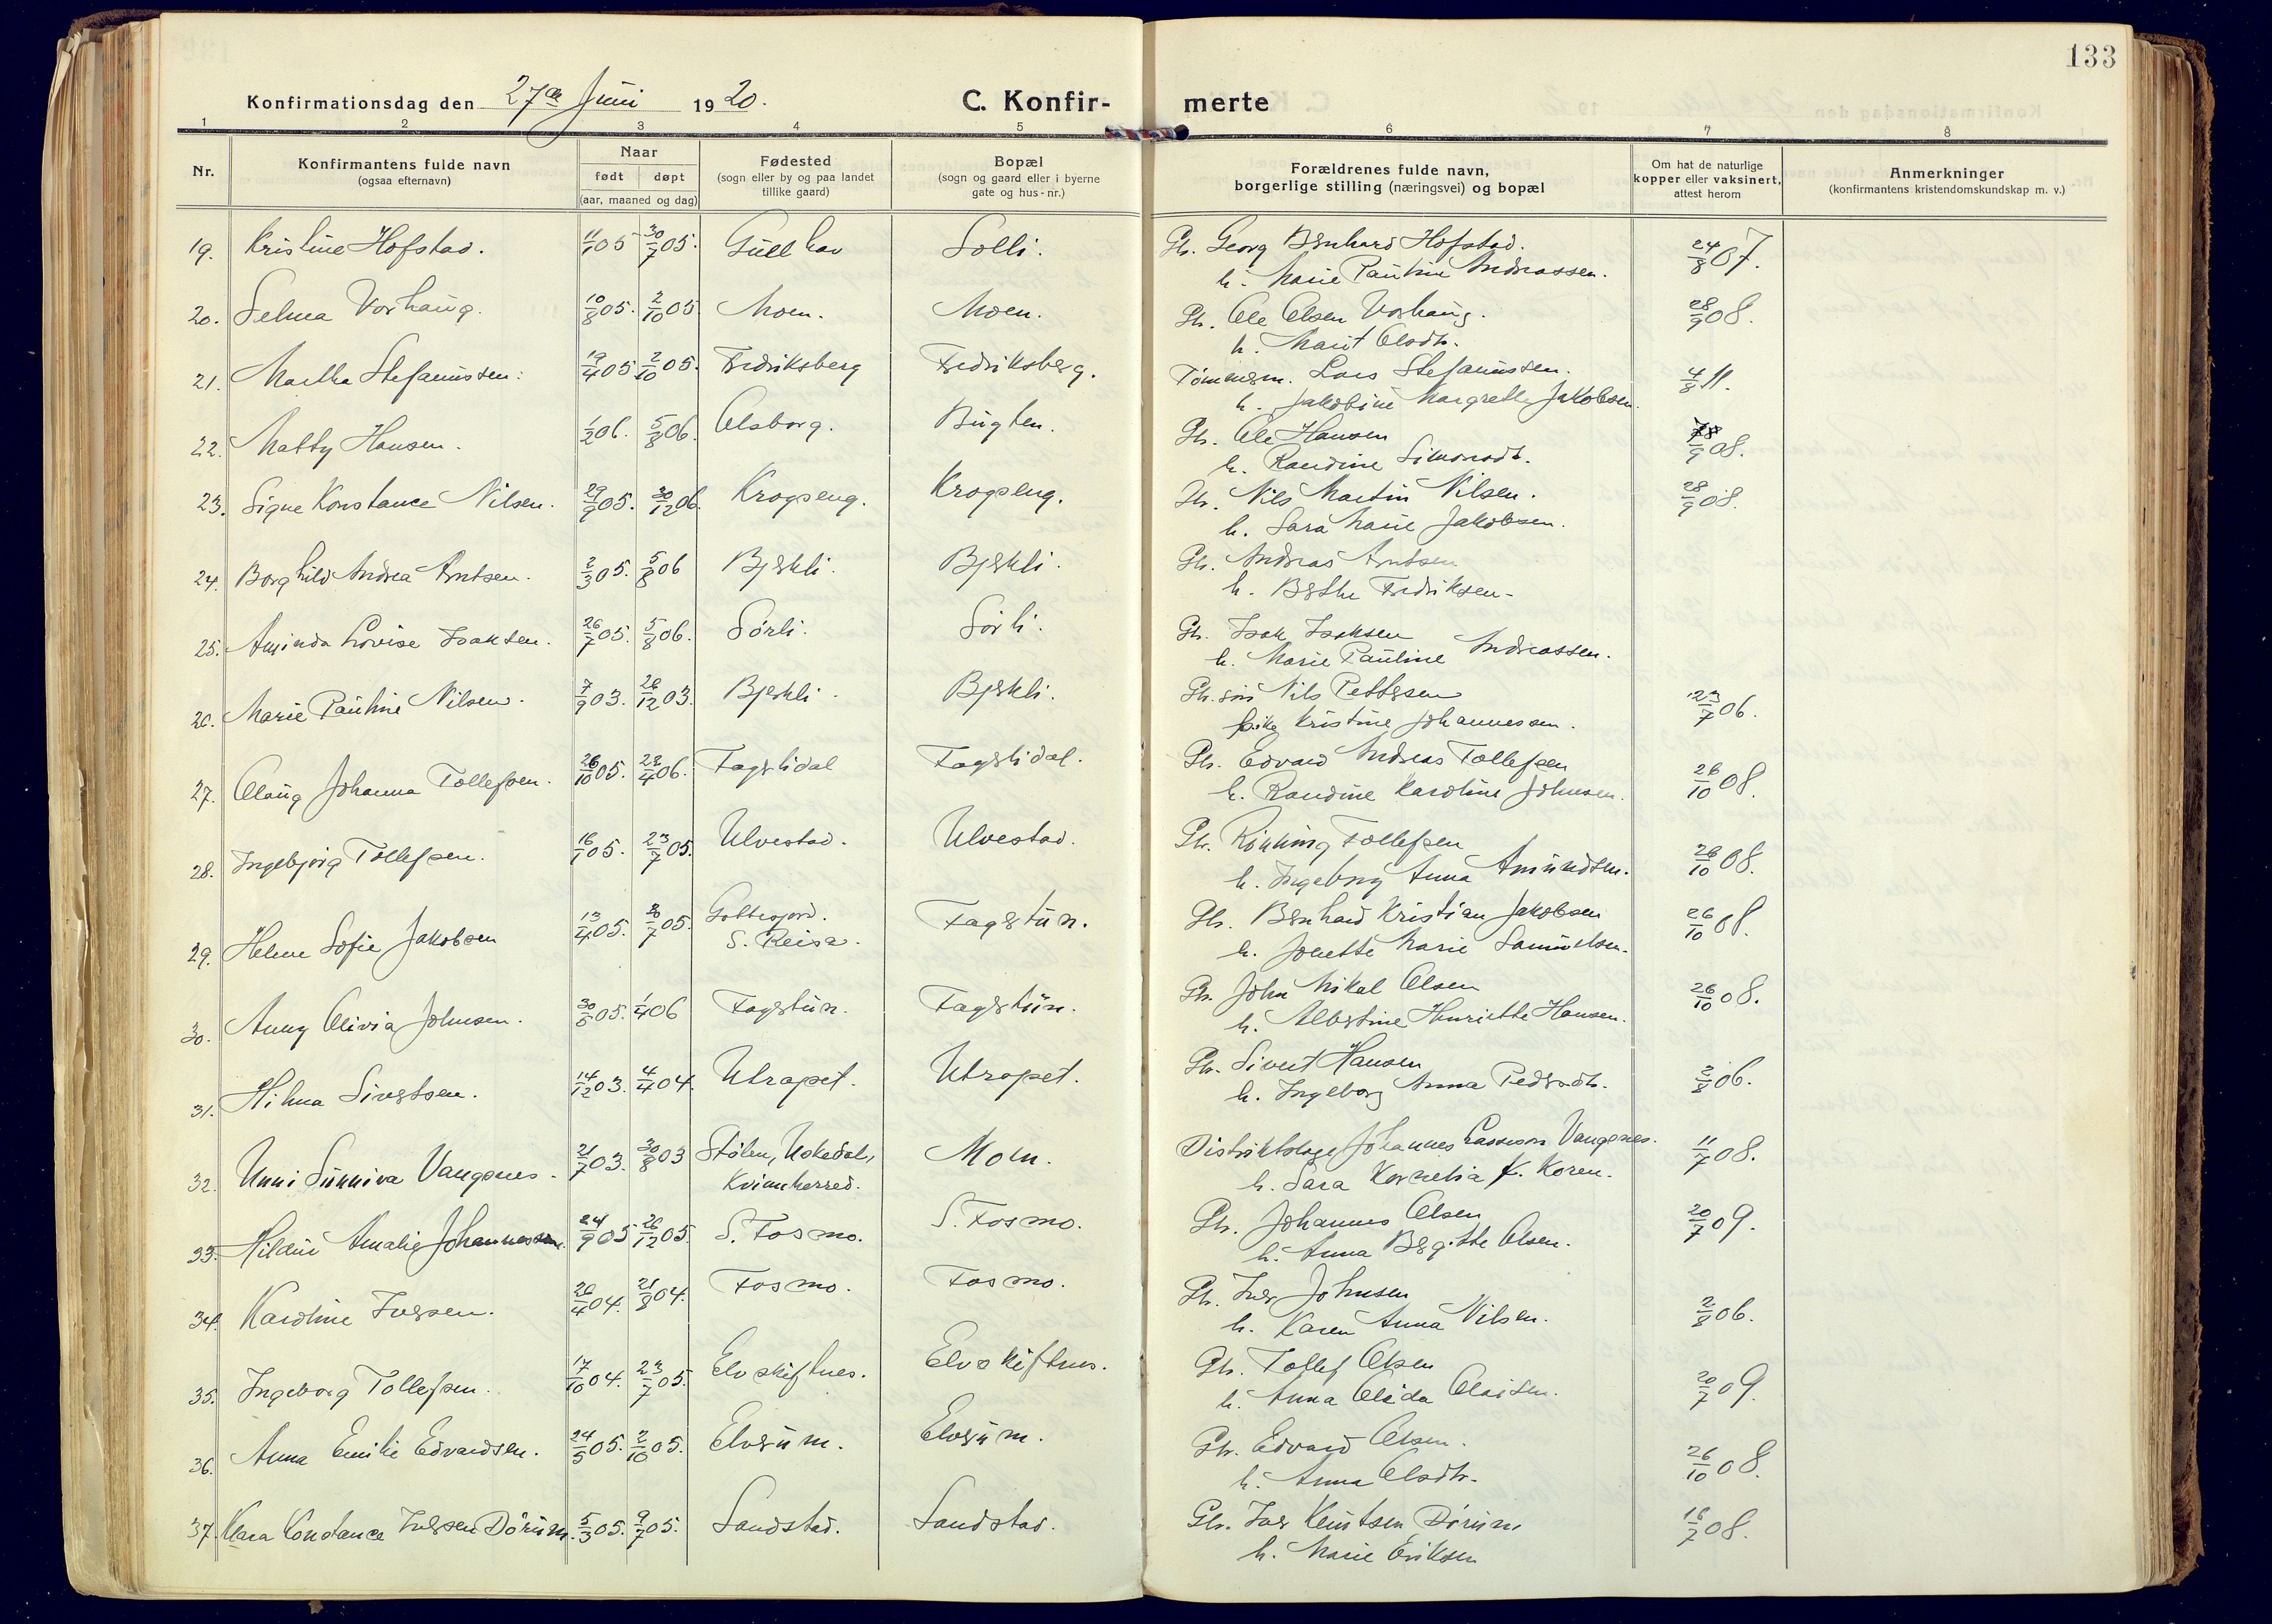 133
Konfirmationsdag den 27de Juni 1920. C. Konfirmerte
1 2 3 4 5 6 7 8
Nr. Konfirmantens fulde navn (ogsaa efternavn) Naar født døpt (aar, maaned og dag) Fødested (sogn eller by og paa landet tillike gaard) Bopæl (sogn og gaard eller i byerne gate og hus-nr.) Forældrenes fulde navn, borgerlige stilling (næringsvei) og bopæl Om hat de naturlige kopper eller vaksinert, attest herom Anmerkninger (konfirmantens kristendomskundskap m. v.)
19. Kristine Hofstad. 11/1 05 30/7 05. Gullhav Solli. Gb. Georg Bernhard Hofstad. 24/8 07.
h. Marie Pauline Andreassen.
20. Selma Vorhaug. 10/8 05. 2/10 05 Moen. Moen. Gb. Ole Olsen Vorhaug. 28/9 08.
h. Marit Olsdtr.
21. Martha Stefanussen. 19/4 05 2/10 05. Fredriksberg Fredriksberg. Tømmerm. Lars Stefanussen. 4/8 11.
h. Jakobine Margrethe Jakobsen.
22. Matty Hansen. 1/2 06. 5/8 06. Olsborg. Bugten. Gb. Ole Hansen 28/9 08.
h. Randine Simonsdtr.
23. Signe Konstance Nilsen. 29/9 05. 30/12 06. Krogseng. Krogseng. Gb. Nils Martin Nilsen. 28/9 08.
h. Sara Marie Jakobsen.
24. Borghild Andrea Arntsen. 2/3 05. 5/8 06 Bjerkli. Bjerkli. Gb. Andreas Arntsen
h. Berthe Fredriksen.
25. Aminda Lovise Isaksen. 26/7 05. 5/8 06. Sørli. Sørli. Gb. Isak Isaksen
h. Marie Pauline Andreassen.
26. Marie Pauline Nilsen. 7/9 03. 26/12 03. Bjerkli. Bjerkli. Gb.søn Nils Pettersen 23/7 06.
pike Kristine Johannessen.
27. Olaug Johanna Tollefsen. 26/10 05. 22/4 06. Fagerlidal Fagerlidal. Gb. Edvard Andreas Tollefsen 26/10 08.
h. Randine Karoline Johnsen.
28. Ingebjørg Tollefsen. 16/1 05. 23/7 05. Ulvestad. Ulvestad. Gb. Rønning Tollefsen 26/10 08.
h. Ingeborg Anna Amundsen.
29. Helene Sofie Jakobsen 13/4 05. 30/7 05. Gottesjord. Fagertun. Gb. Bernhard Kristian Jakobsen 26/10 08.
S. Reisa. h. Jonette Marie Samuelsen.
30. Anny Olivia Johnsen. 30/5 05. 1/4 06 Fagertun. Fagertun. Gb. John Mikal Olsen 26/10 08.
h. Albertine Henriette Hansen.
31. Hilma Sivertsen. 14/12 03. 4/4 04. Utropet. Utropet. Gb. Sivert Hansen 2/8 06.
h. Ingeborg Anna Pedersdtr.
32. Unni Sunniva Vangsnes. 21/7 03. 30/8 03 Stølen, Uskedal, Moen. Distriktslæge Johannes Lassesson Vangsnes. 11/7 08.
Kvinnherred. h. Sara Kornelia K. Koren.
33. Hildur Amalie Johannessen. 24/9 05 26/12 05. S. Fosmo. S. Fosmo. Gb. Johannes Olsen 20/7 09.
h. Anna Bergitte Olsen.
34. Karoline Iversen. 26/4 04. 21/8 04. Fosmo. Fosmo. Gb. Iver Johnsen 2/8 06.
h. Karen Anna Nilsen.
35. Ingeborg Tollefsen. 17/10 04. 23/7 05. Elveskiftnes. Elveskiftnes. Gb. Tollef Olsen 20/7 09.
h. Anna Olsdtr
36. Anna Emilie Edvardsen. 24/5 05. 2/10 05. Elverum. Elverum. Gb. Edvard Olsen. 26/10 08.
h. Anna Olsdtr.
37. Klara Konstance Iversen Dørum. 5/3 05. 9/7 05. Sandstad. Sandstad. Gb. Iver Knutsen Dørum 16/7 08.
h. Marie Eriksen